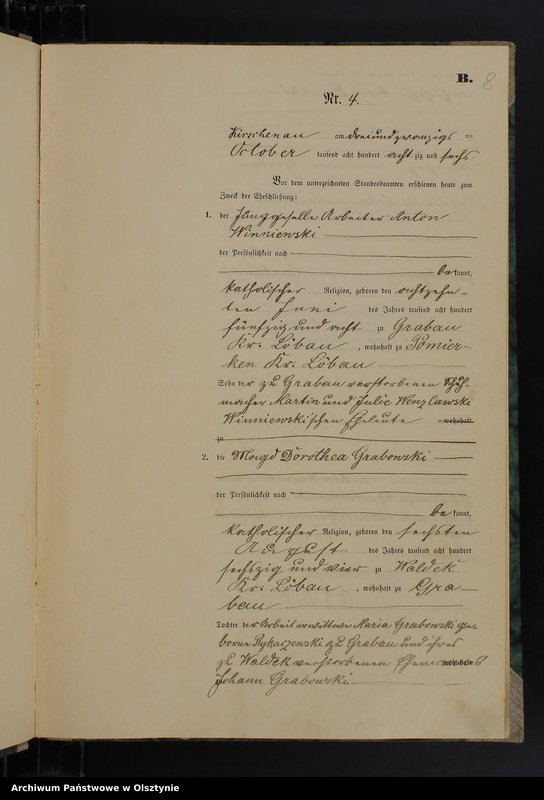 B. 8
Nr. 4.
Kirschenau am dreiundzwanzigsten
October tausend acht hundert achtzig und sechs.
Vor dem unterzeichneten Standesbeamten erschienen heute zum
Zweck der Eheschließung:
1. der Junggeselle Arbeiter Anton
Winniewski
der Persönlichkeit nach
bekannt,
katholischer Religion, geboren den achtzehn-
ten Juni des Jahres tausend acht hundert
fünfzig und acht zu Grabau
Kr. Löbau, wohnhaft zu Pomier-
ken Kr. Löbau
Sohn der zu Grabau verstorbenen Schuh-
macher Martin und Julie
Winniewskischen Eheleute wohnhaft
zu
2. die Magd Dorothea Grabowski
der Persönlichkeit nach
bekannt,
katholischer Religion, geboren den sechsten
August des Jahres tausend acht hundert
sechszig und vier zu Waldek
Kr. Löbau, wohnhaft zu Gra-
bau
Tochter der Arbeiterwittwe Maria Grabowski ge-
borne Rykaczewski zu Grabau und ihres
zu Waldek verstorbenen Ehemannes
Johann Grabowski
Archiwum Państwowe w Olsztynie